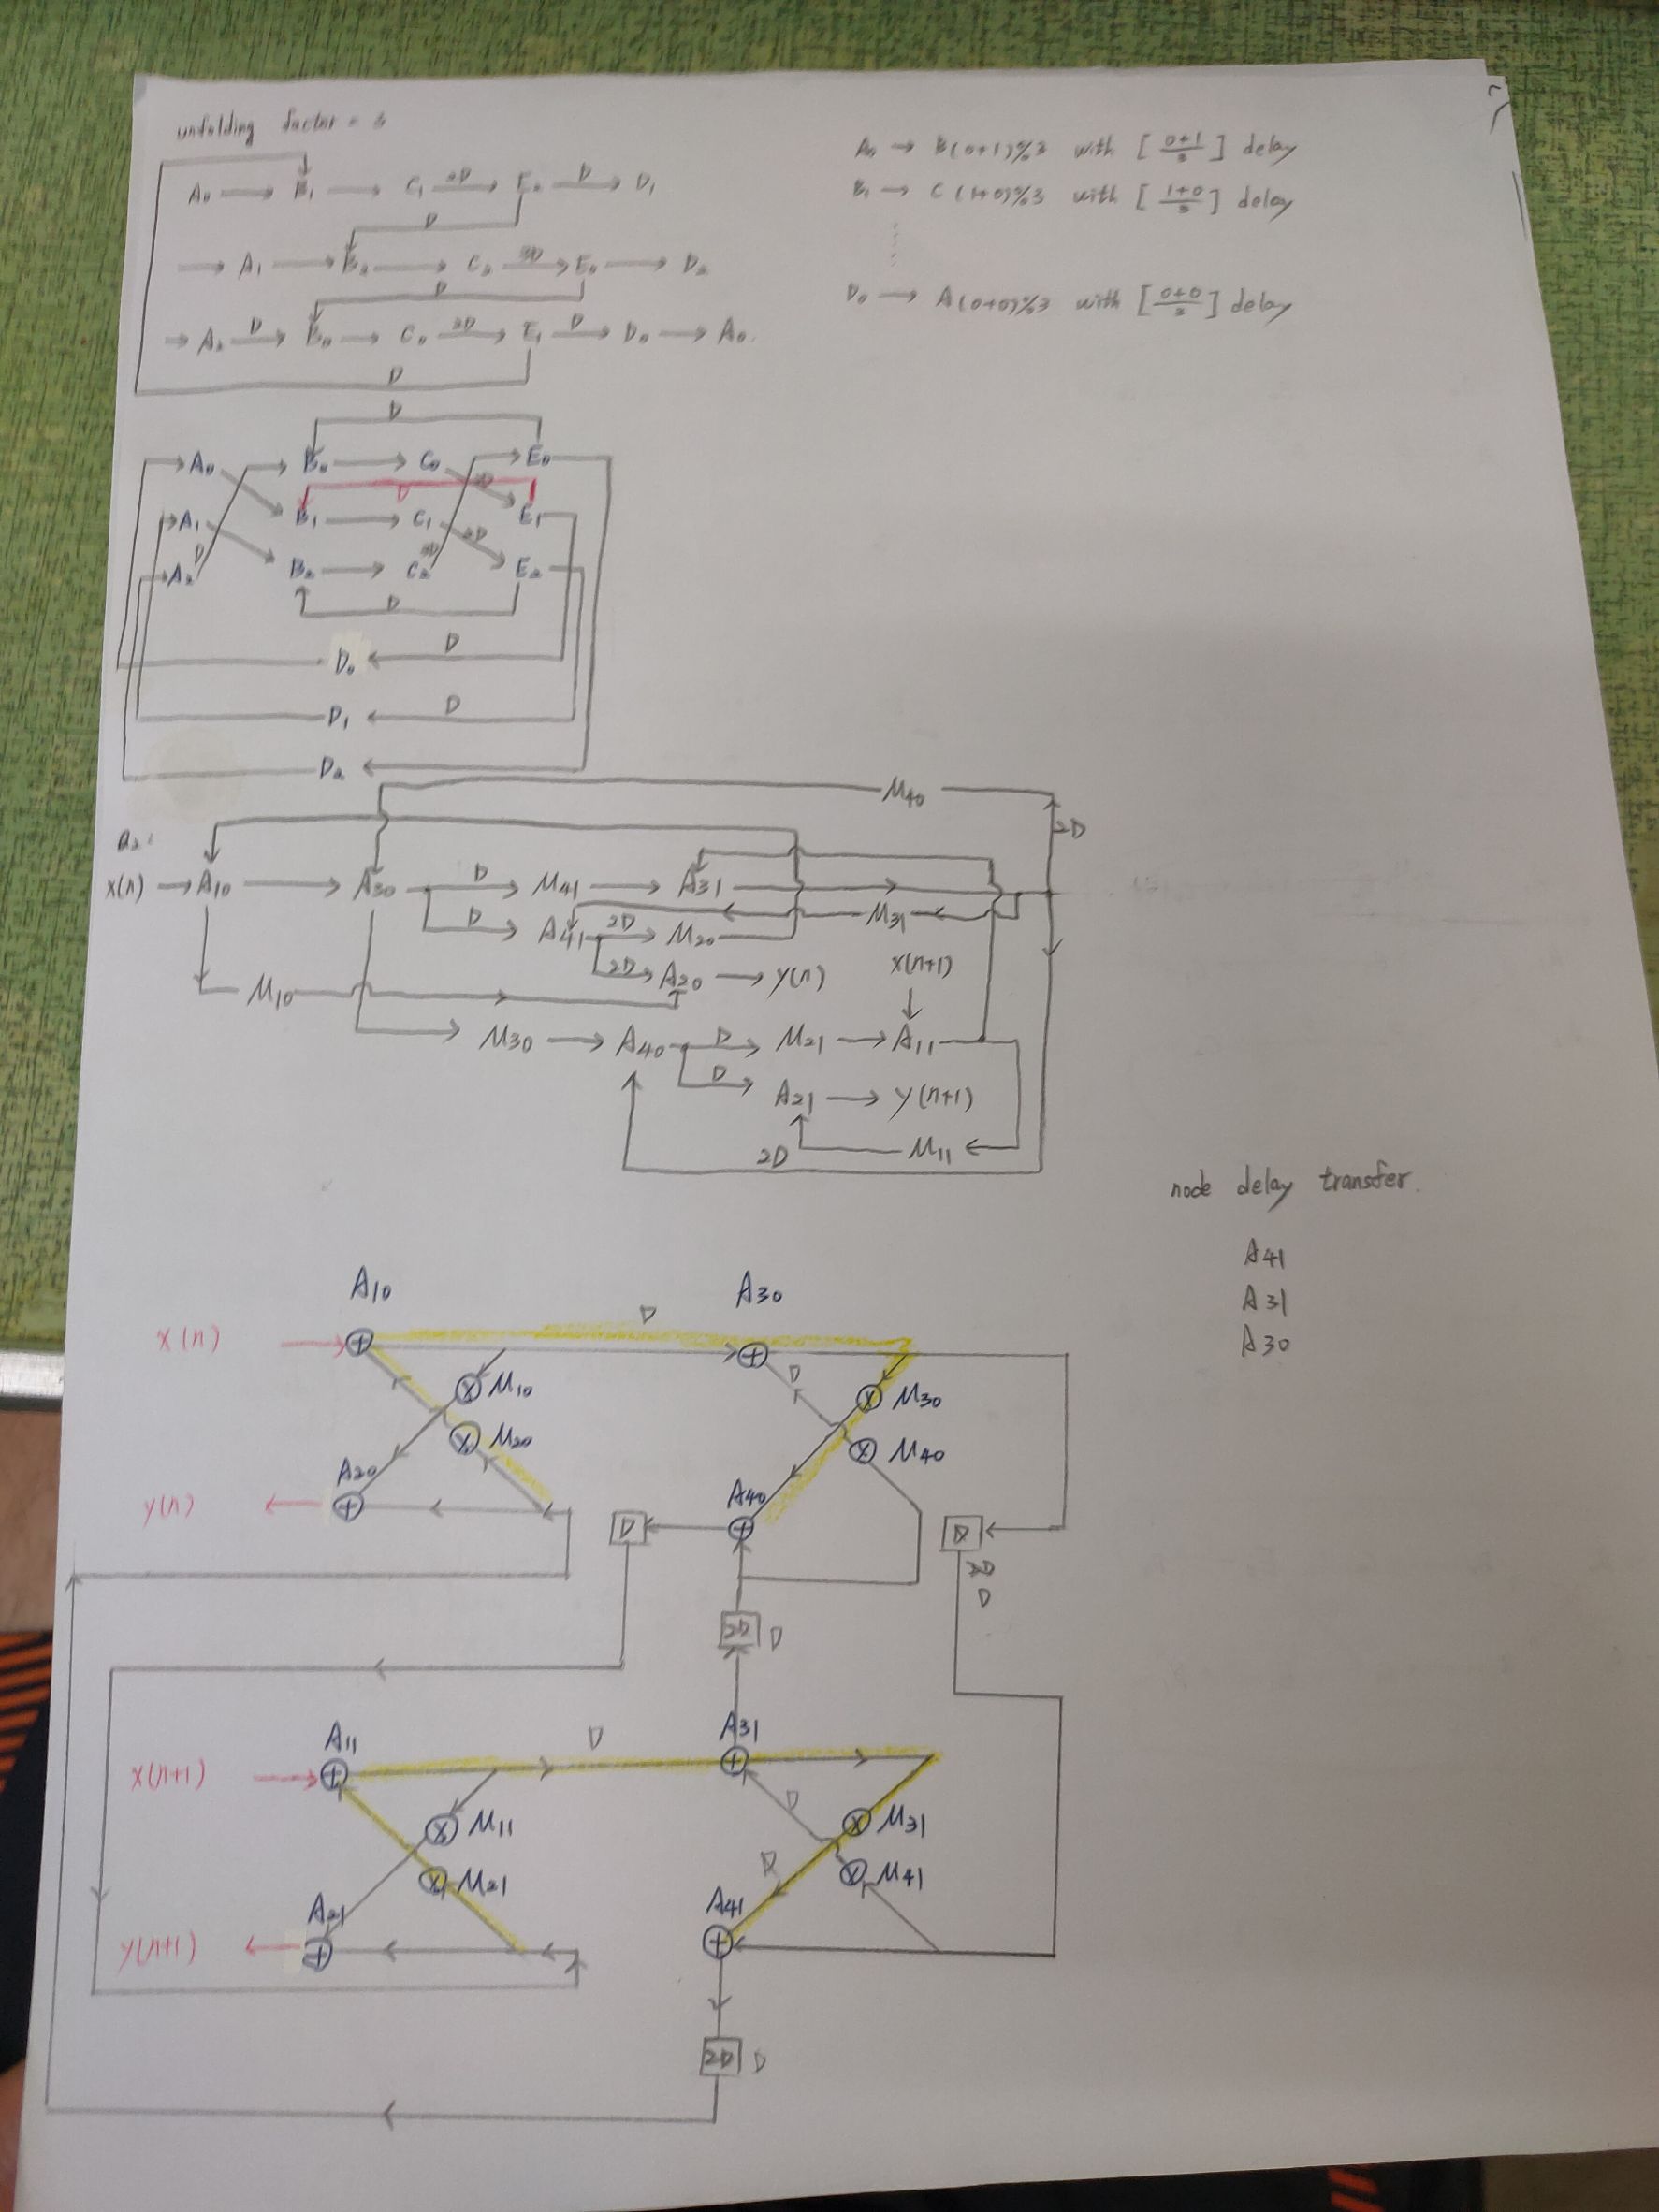 unfolding factor = 3
A₀ → B₁ → C₁ 2D→ E₂ D→ D₁
D
→ A₁ → B₂ → C₂ 3D→ E₀ → D₂
D
→ A₂ D→ B₀ → C₀ 2D→ E₁ D→ D₀ → A₀.
D
A₀ → B(0+1)%3 with [ 0+1/3 ] delay
B₁ → C(1+0)%3 with [ 1+0/3 ] delay
D₀ → A(0+0)%3 with [ 0+0/3 ] delay
D
A₀ B₀ → C₀ E₀
D 2D
A₁ B₁ → C₁ E₁
D 3D 2D
A₂ B₂ → C₂ E₂
D
D₀ ← D
D₁ ← D
D₂ ←
M40
2D
Q2:
X(n) → A10 → A30 D→ M41 → A31
M31
D→ A41 2D→ M20
2D→ A20 → Y(n) X(n+1)
M10
M30 → A40 D→ M21 → A11
D→ A21 → Y(n+1)
2D M11
node delay transfer.
A41
A31
A30
A10 A30
D
X(n)
D
M10 M30
M20 M40
A20 A40
y(n)
D D
2D
2D D
A11 A31
D
X(n+1)
D
M11 M31
M21 D M41
A21 A41
Y(n+1)
2D D